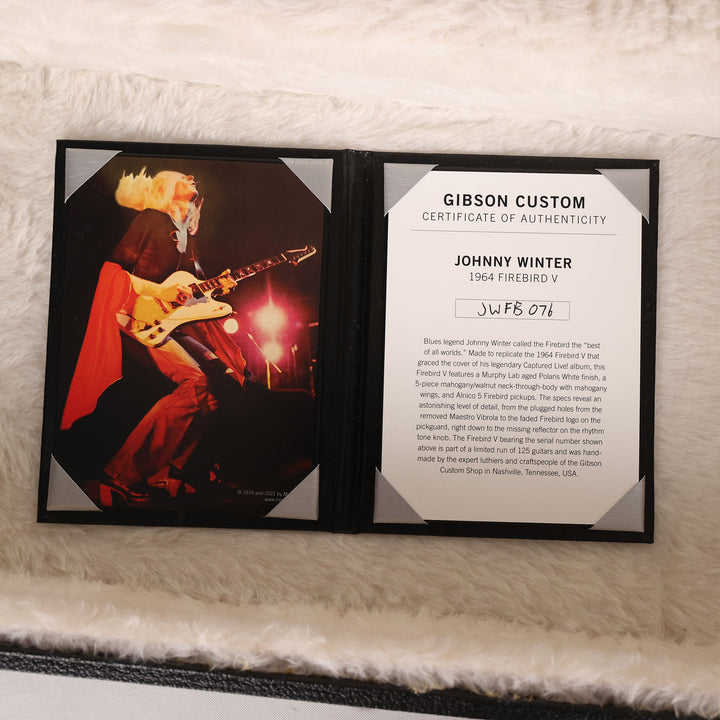 GIBSON CUSTOM
CERTIFICATE OF AUTHENTICITY
JOHNNY WINTER
1964 FIREBIRD V
JWFB 076
Blues legend Johnny Winter called the Firebird the “best
of all worlds.” Made to replicate the 1964 Firebird V that
graced the cover of his legendary Captured Live! album, this
Firebird V features a Murphy Lab aged Polaris White finish, a
5-piece mahogany/walnut neck-through-body with mahogany
wings, and Alnico 5 Firebird pickups. The specs reveal an
astonishing level of detail, from the plugged holes from the
removed Maestro Vibrola to the faded Firebird logo on the
pickguard, right down to the missing reflector on the rhythm
tone knob. The Firebird V bearing the serial number shown
above is part of a limited run of 125 guitars and was hand-
made by the expert luthiers and craftspeople of the Gibson
Custom Shop in Nashville, Tennessee, USA.
© 1974 and 2021 by
www.